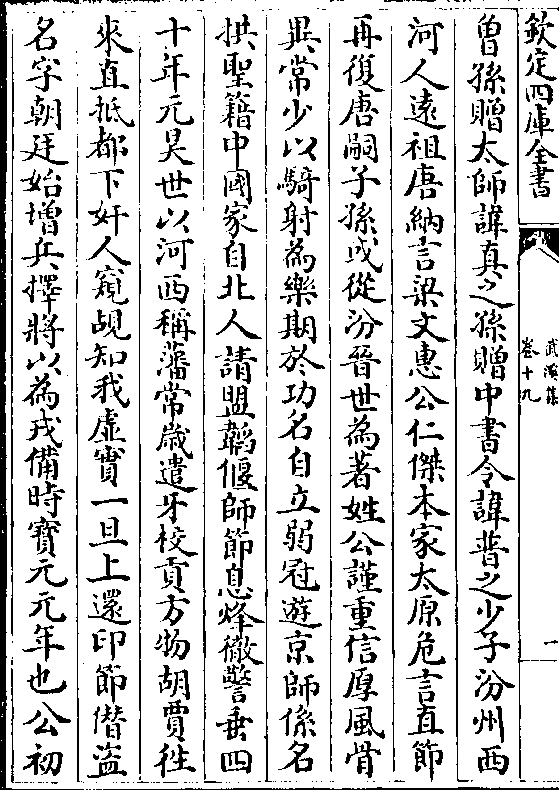 欽定四庫全書
武溪集
卷十九
一
曾孫贈太師諱真之孫贈中書令諱普之少子汾州西
河人遠祖唐納言梁文惠公仁傑本家太原危言直節
再復唐嗣子孫或從汾晉世為著姓公謹重信厚風骨
異常少以騎射為樂期於功名自立弱冠遊京師係名
拱聖籍中國家自北人請盟韜偃師節息烽徹警垂四
十年元昊世以河西稱藩常歲遣牙校貢方物胡賈往
來直抵都下奸人窺覘知我虛實一旦上還印節僣盗
名字朝廷始增兵擇將以為戎備時寳元元年也公初